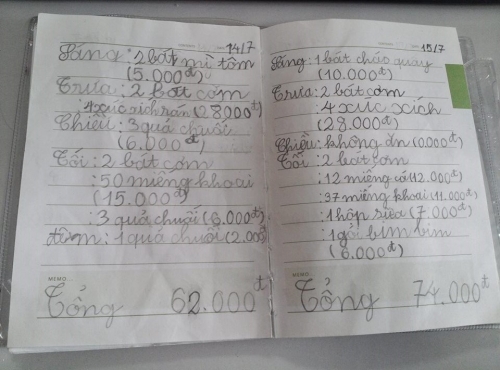 14/7
Sáng: 2 bát mì tôm
(5.000đ)
Trưa: 2 bát cơm
: 4 xúc xích rán (28.000đ)
Chiều: 3 quả chuối
(6.000đ)
Tối: 2 bát cơm
: 50 miếng khoai
(15.000đ)
: 3 quả chuối (6.000đ)
đêm: 1 quả chuối (2.000đ)
MEMO
Tổng 62.000đ
15/7
Sáng: 1 bát cháo quay
(10.000đ)
Trưa: 2 bát cơm
: 4 xúc xích
(28.000đ)
Chiều: không ăn (0.000đ)
Tối: 2 bát cơm
: 12 miếng cá (12.000đ)
: 37 miếng khoai (11.000đ)
: 1 hộp sữa (7.000đ)
: 1 gói bim bim
(6.000đ)
MEMO
Tổng 74.000đ